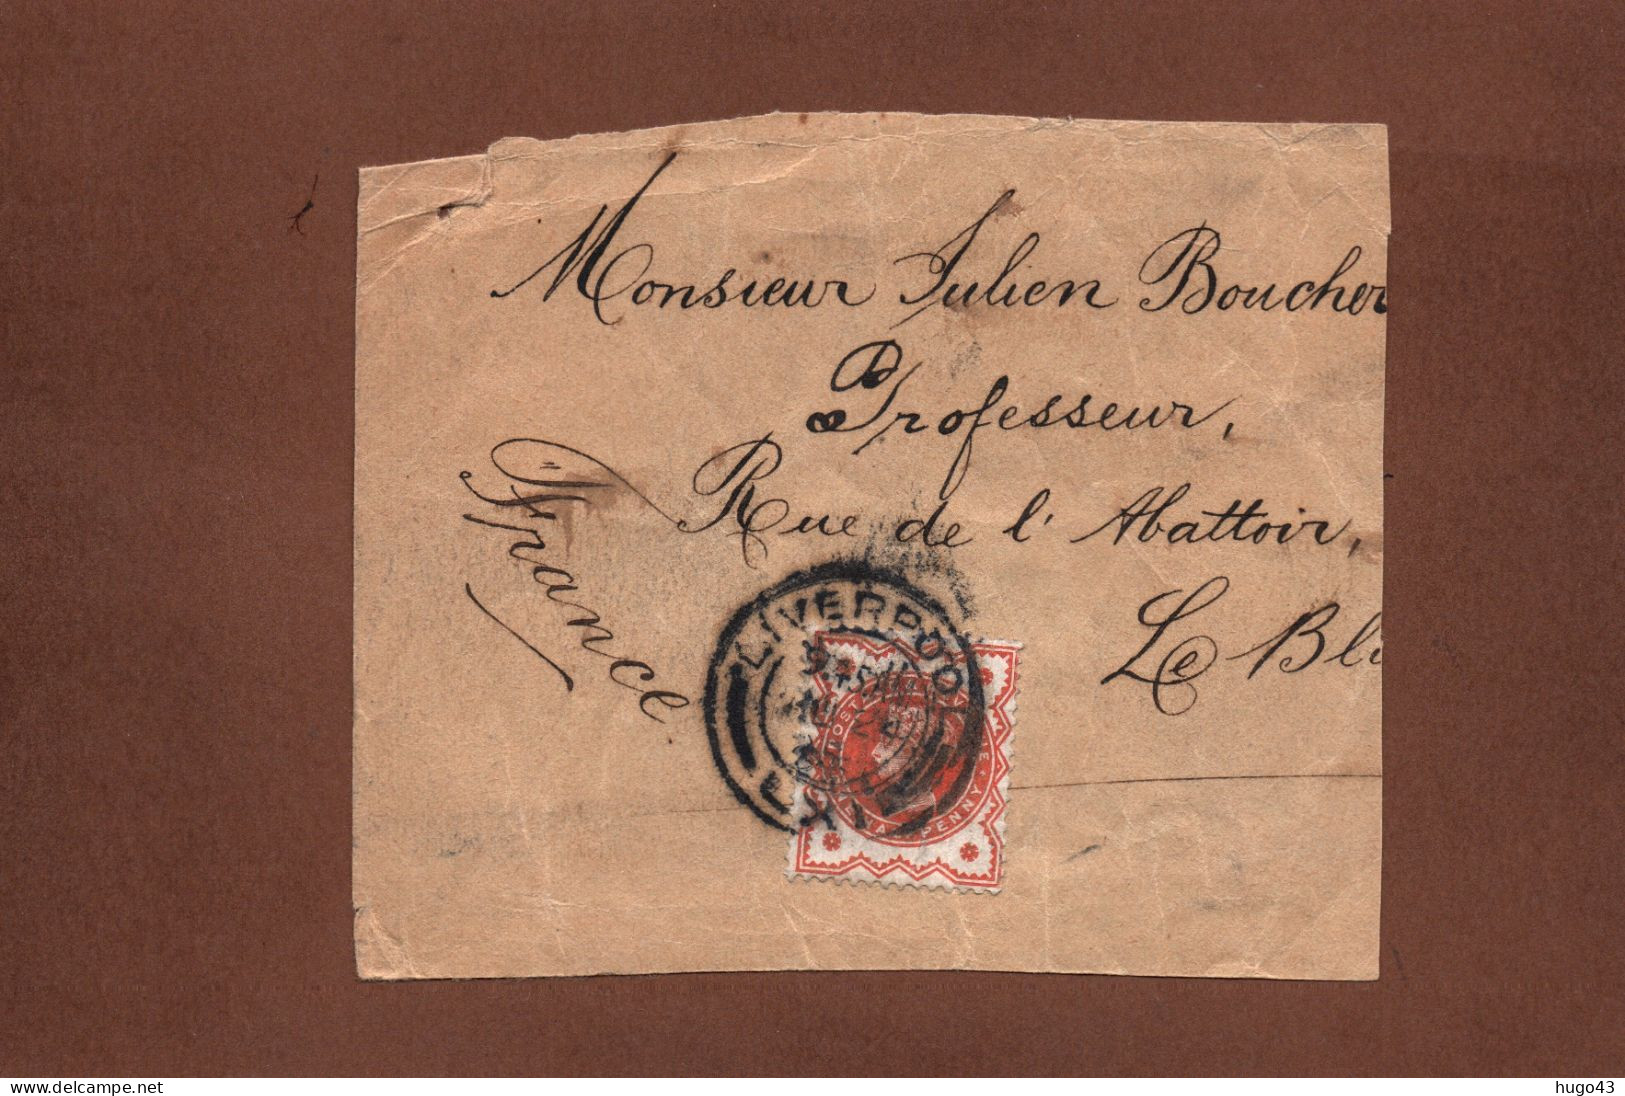 Monsieur Julien Boucher
Professeur,
Rue de l'Abattoir,
Le Bl
France
LIVERPOOL
POSTAGE
HALFPENNY
www.delcampe.net
hugo43